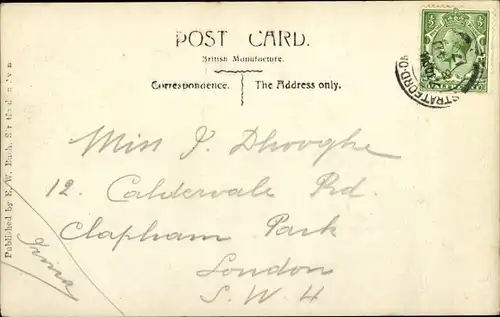 POST CARD.
British Manufacture.
Correspondence. The Address only.
STRATFORD-ON
Miss J. Dhooghe
12. Caldervale Rd.
Clapham Park
London
S.W. 4
Irma
Published by E.W. Bush,